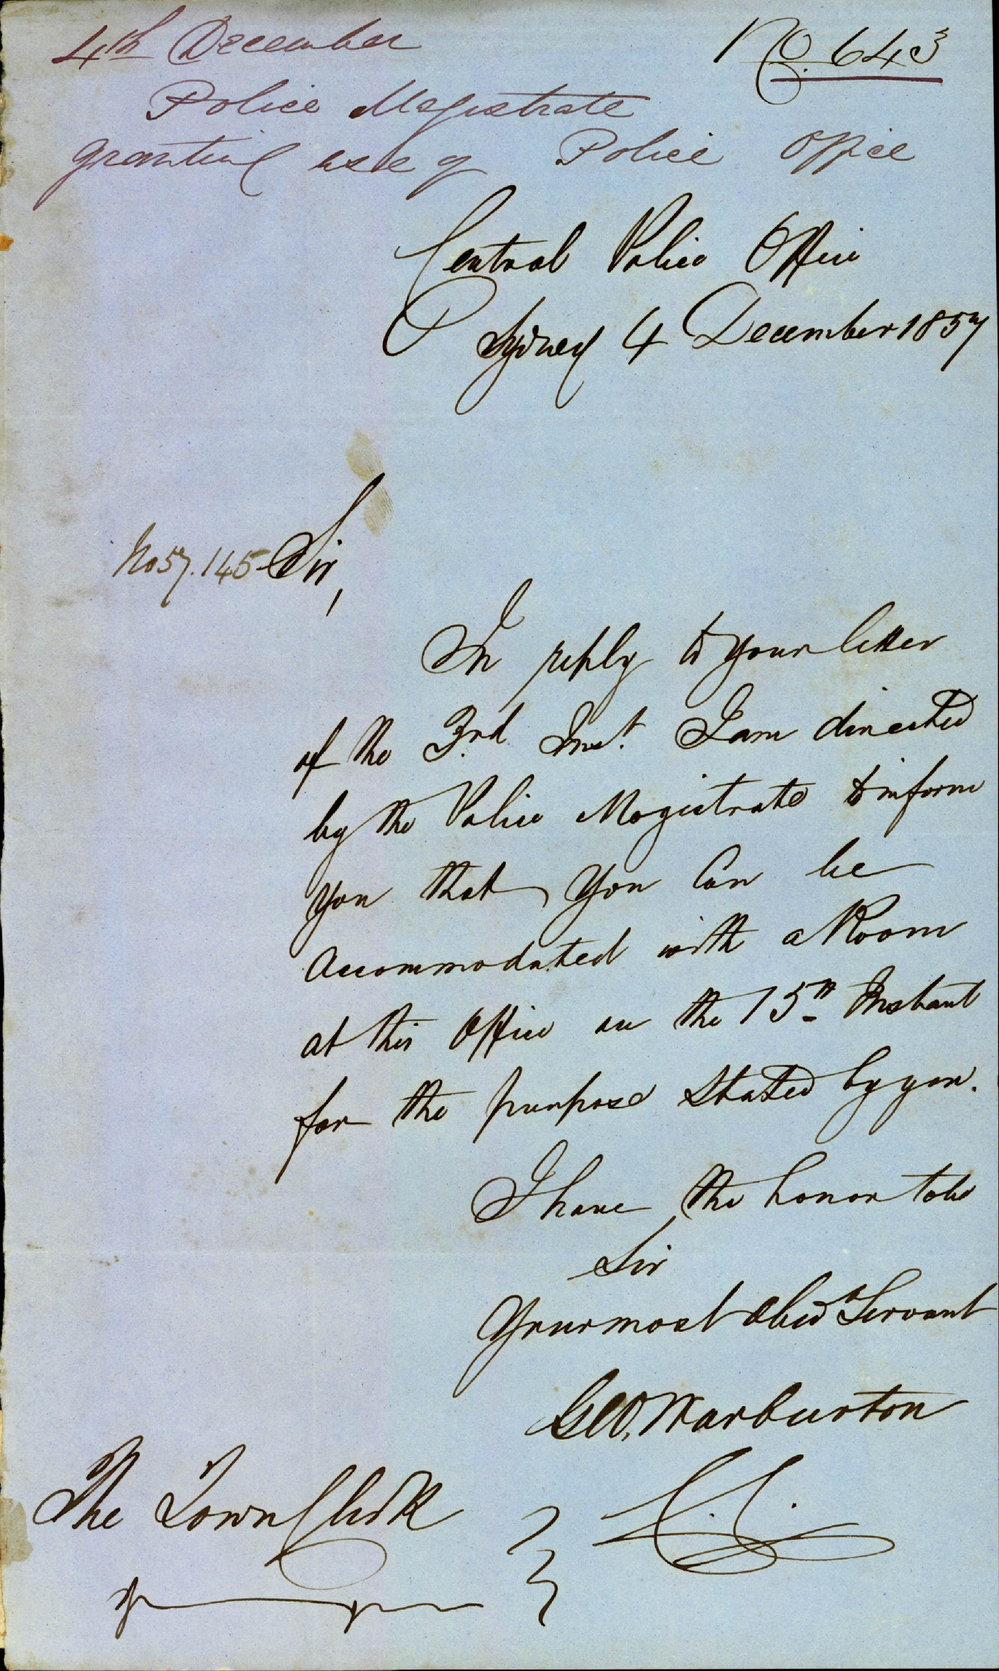 4th December
No. 643
Police Magistrate
granting use of Police Office
Central Police Office
Sydney 4 December 1857
No 57.145 Sir,
In reply to your letter
of the 3rd Inst. I am directed
by the Police Magistrate to inform
you that you Can be
Accommodated with a Room
at this Office on the 15th Instant
for the purpose Stated by you.
I have the honor to be
Sir
Your most Obedt Servant
Geo. Warburton
The Town Clerk
C.C.